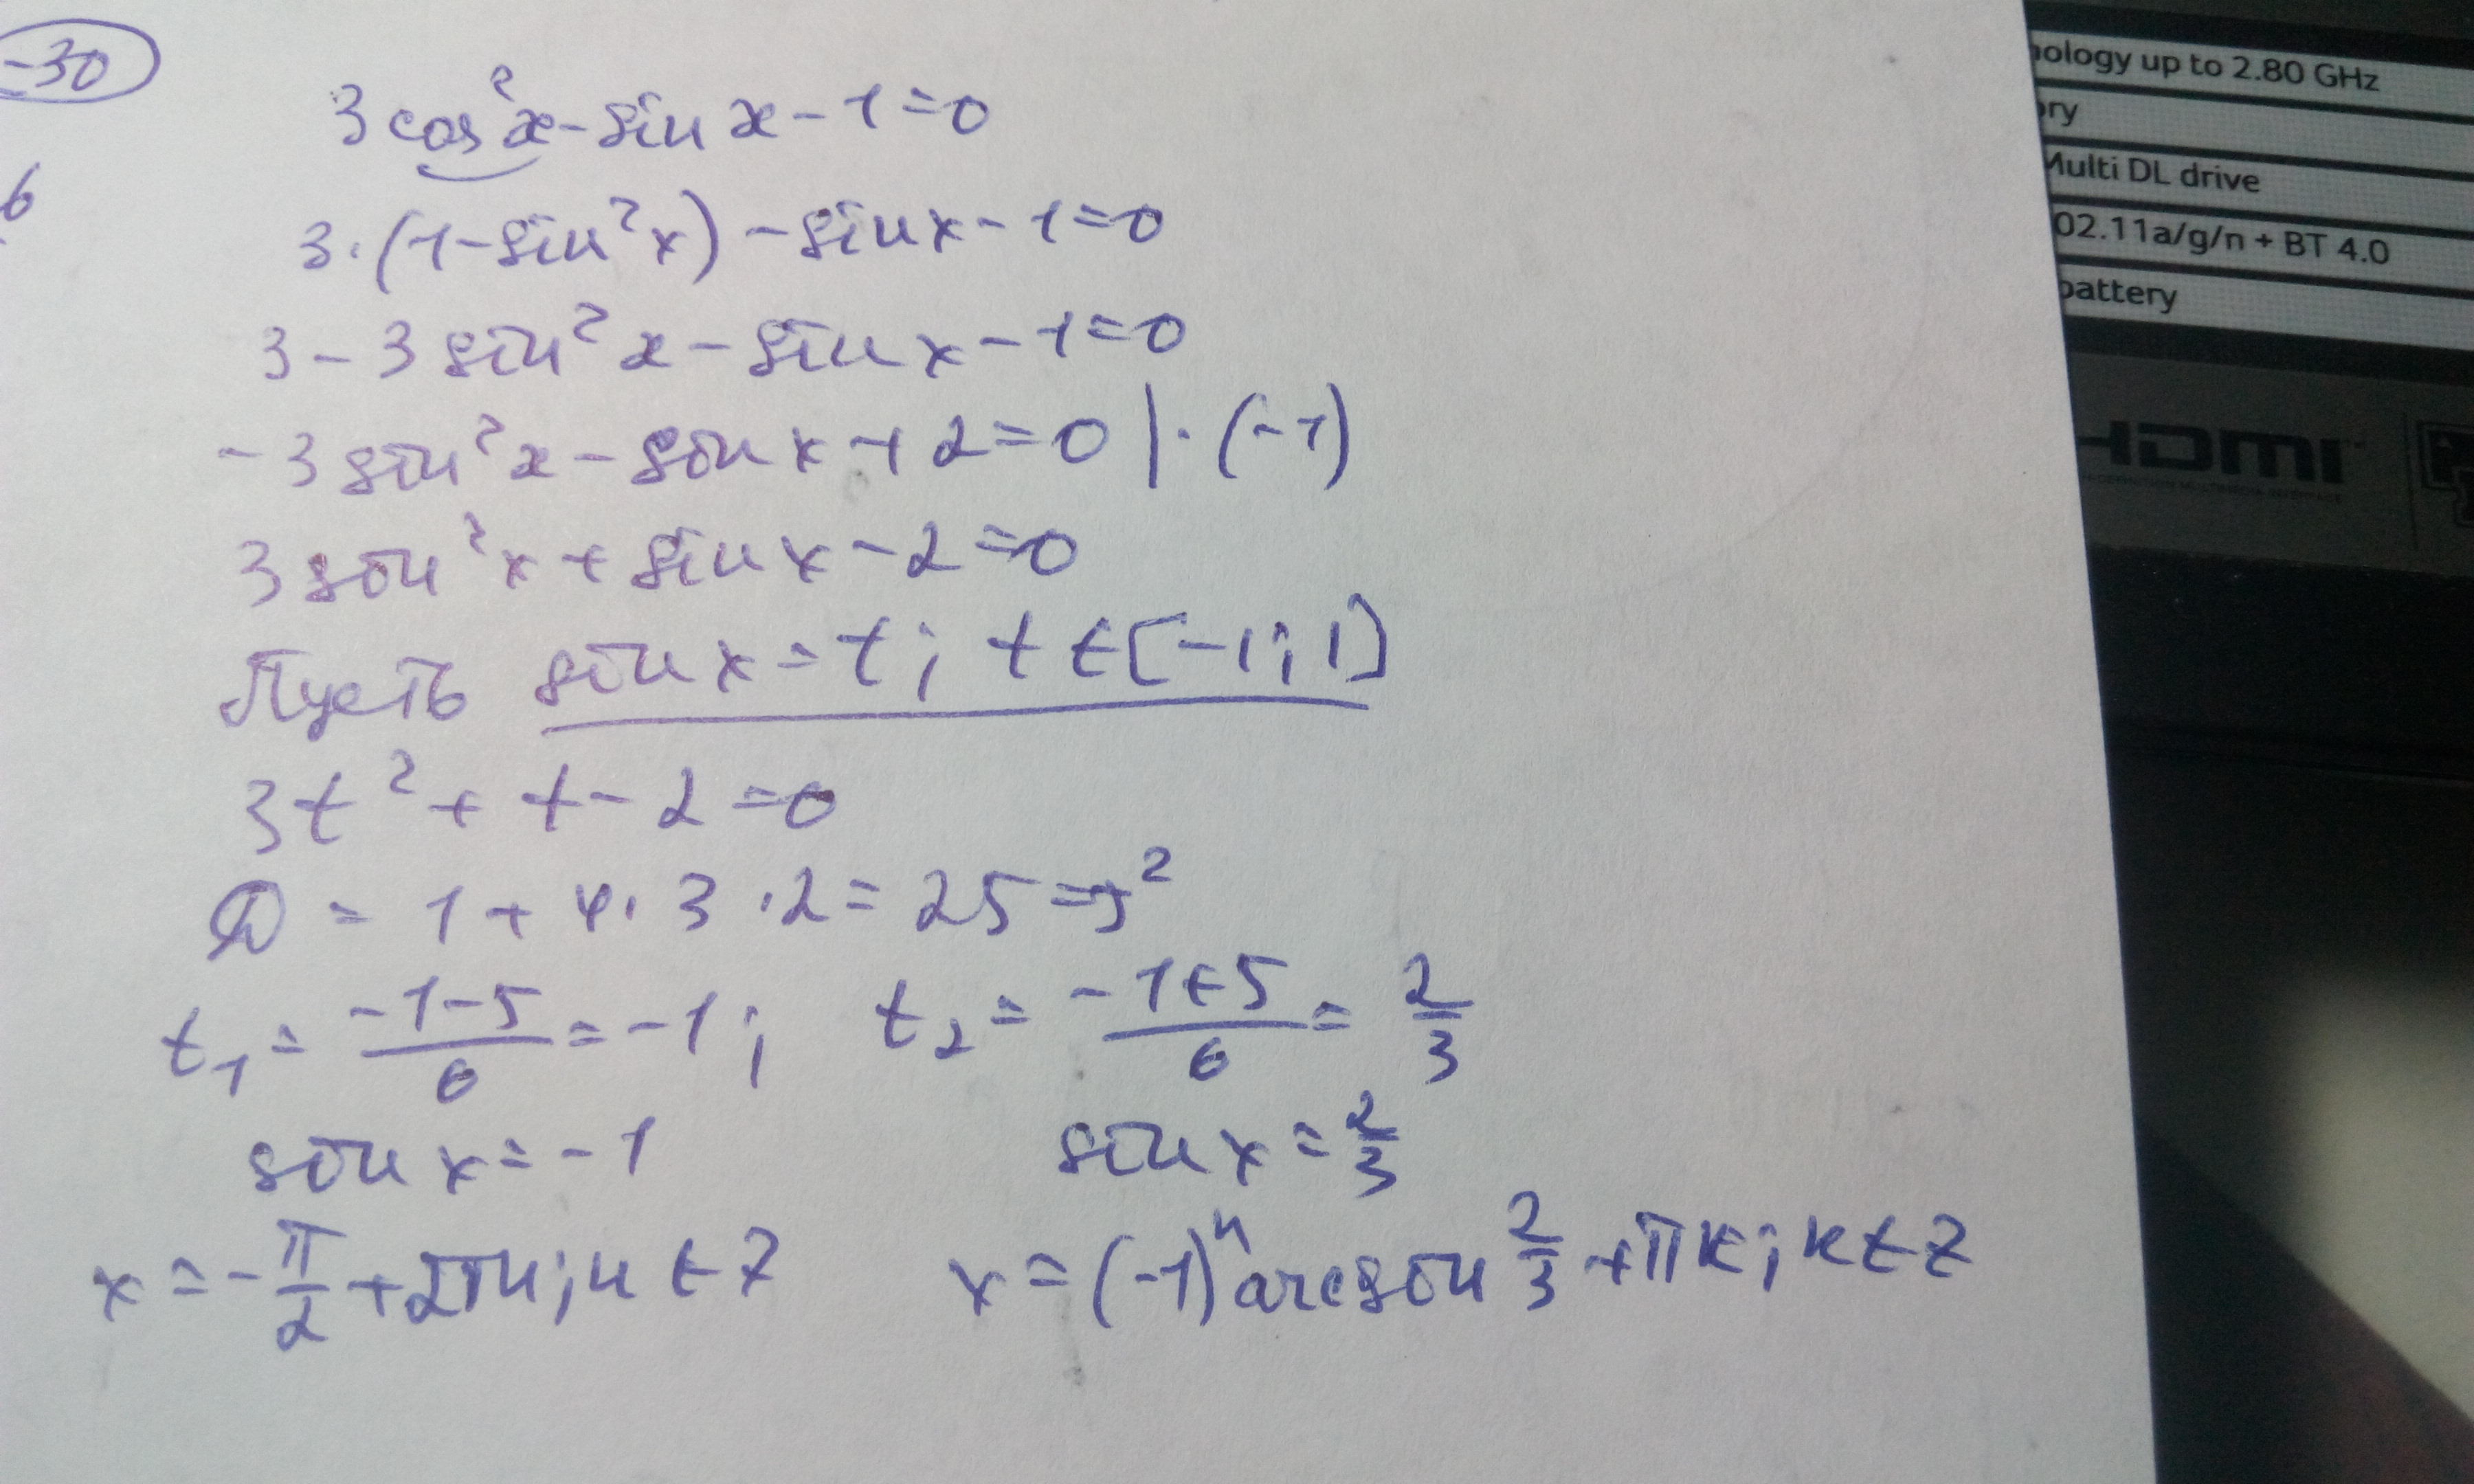 -30
3cos²x-sinx-1=0
6
3·(1-sin²x)-sinx-1=0
3-3sin²x-sinx-1=0
-3sin²x-sinx+2=0 |·(-1)
3sin²x+sinx-2=0
Пусть sinx=t; t∈[-1;1]
3t²+t-2=0
D=1+4·3·2=25=5²
t₁=(-1-5)/6=-1; t₂=(-1+5)/6=2/3
sinx=-1 sinx=2/3
x=-π/2+2πn; n∈Z x=(-1)ⁿarcsin2/3+πk; k∈Z
up to 2.80 GHz
Multi DL drive
02.11a/g/n + BT 4.0
battery
HDMI